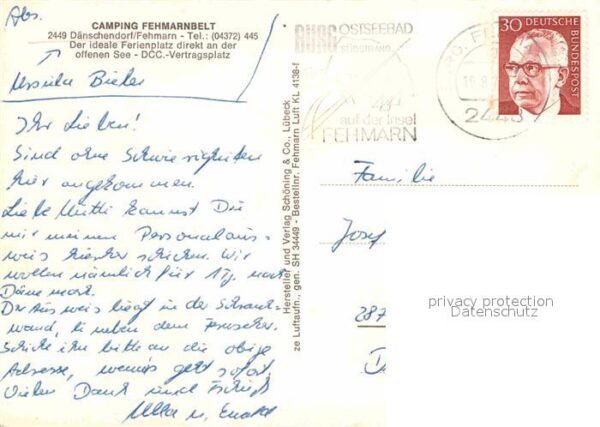 Abs.
CAMPING FEHMARNBELT
2449 Dänschendorf/Fehmarn - Tel.: (04372) 445
Der ideale Ferienplatz direkt an der
offenen See - DCC.-Vertragsplatz
Ursula
Ihr Lieben!
Sind ohne Schwierigkeiten
hier angekommen.
Liebe Mutti kannst Du
mir meinen Personalaus-
weis hierher schicken. Wir
wollen nämlich für 1 Tg. nach
Dänemark.
Der Ausweis liegt in der Schrank-
wand, li neben dem Fernseher.
Schicke ihn bitte an die obige
Adresse, wenns geht sofort.
Vielen Dank und
Ulla u.
Hersteller und Verlag Schöning & Co., Lübeck
ze Luftaufn., gen. SH 34449 - Bestellnr. Fehmarn Luft KL 4138-f
BURG OSTSEEBAD
SÜDSTRAND
auf der Insel
FEHMARN
BURG, FE
2448
30 DEUTSCHE
BUNDESPOST
Familie
Josef
287
privacy protection
Datenschutz